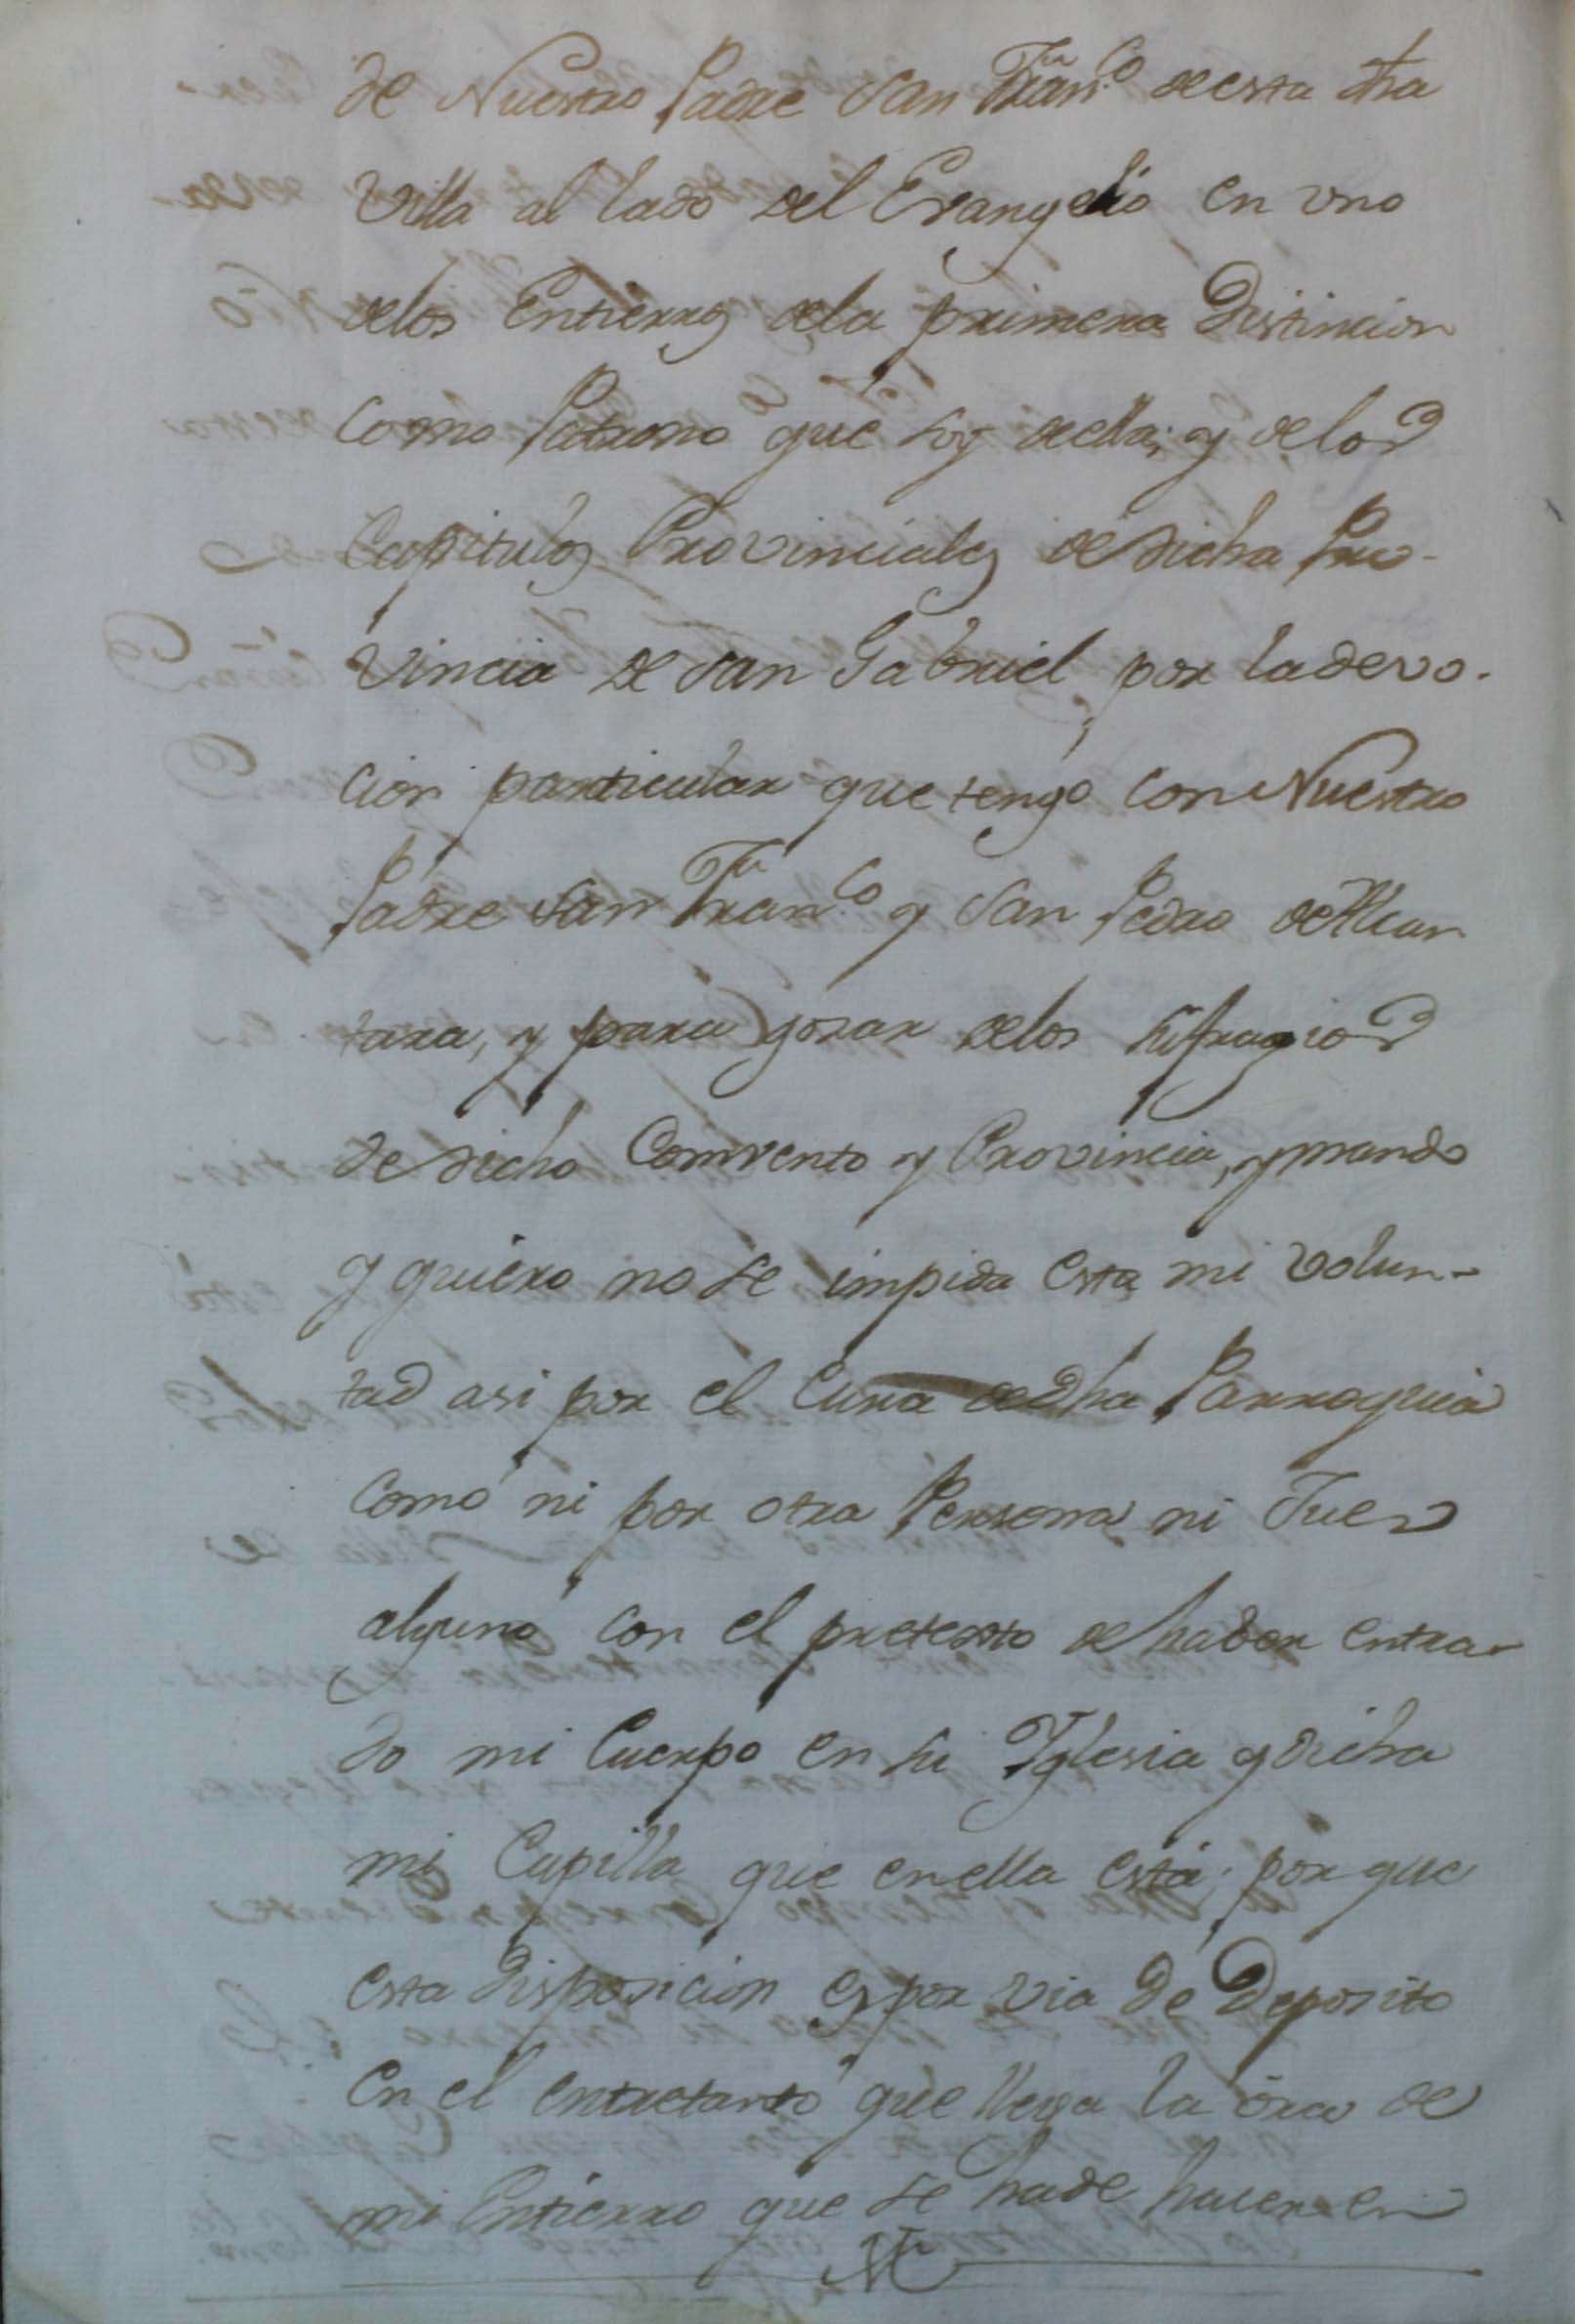 de Nuestro Padre San Fran.co de esta dha
Villa al lado del Evangelio en vno
delos Entierros dela primera Distincion
como Patrono que soy de ella; y delos
Capitulos Provinciales de dicha Pro-
vincia de San Gabriel por la devo-
cion particular que tengo con Nuestro
Padre San Fran.co y San Pedro de Alcan
tara, y para gosar delos sufragios
de dicho Comvento y Provincia, y mando
y quiero no se impida esta mi volun-
tad asi por el Cura de dha Parroquia
como ni por otra Persona ni Jues
alguno con el pretexto de haver entra-
do mi Cuerpo en su Yglesia y dicha
mi Capilla que en ella está; por que
esta disposicion es por via de Deposito
en el entretanto que llega la ora de
mi Entierro que se ha de hacer en